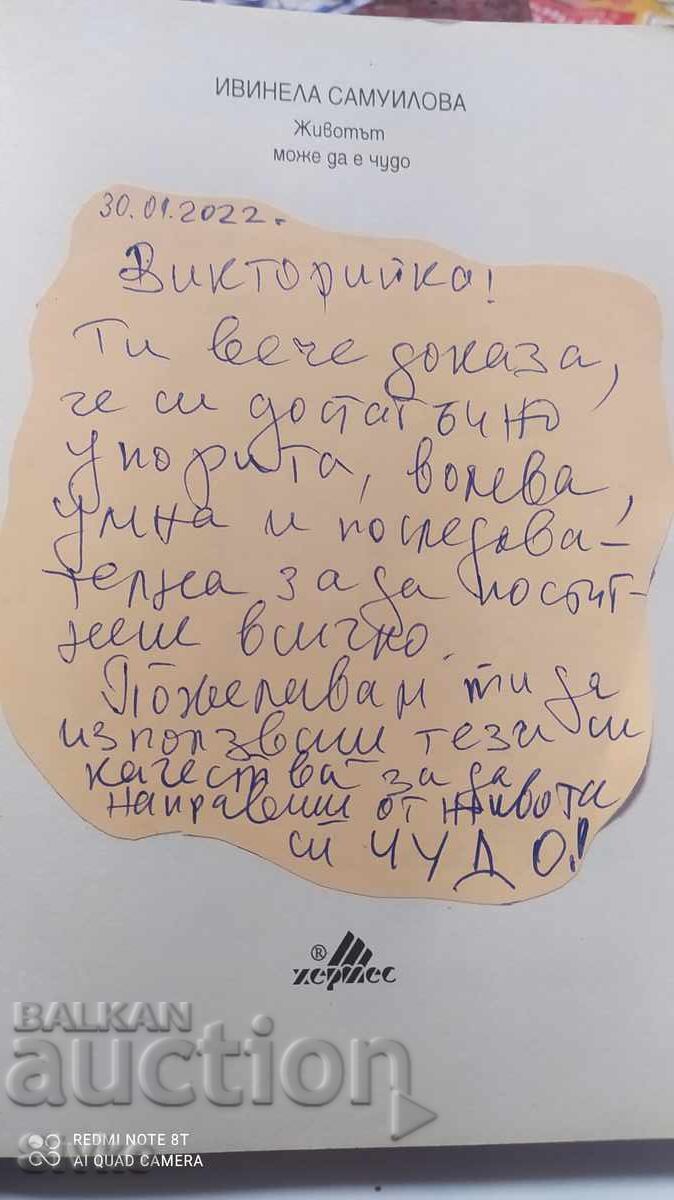 ИВИНЕЛА САМУИЛОВА
Животът
може да е чудо
30.01.2022г.
Викторийка!
Ти вече доказа,
че си достатъчно
упорита, волева,
умна и последова-
телна за да постиг-
неш всичко.
Пожелавам ти да
използваш тези си
качества за да
направиш от живота
си ЧУДО!
®
хермес
BALKAN
auction
REDMI NOTE 8T
AI QUAD CAMERA